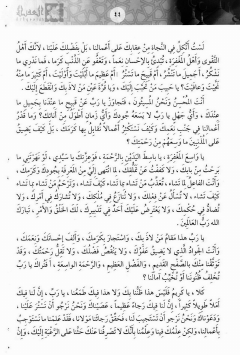 ١٤
لَسْتُ أَتَّكِلُ فِي النَّجَاةِ مِنْ عِقَابِكَ عَلَى أَعْمَالِنَا، بَلْ بِفَضْلِكَ عَلَيْنَا، لِأَنَّكَ أَهْلُ
التَّقْوَى وَأَهْلُ الْمَغْفِرَةِ، تُبْدِئُ بِالْإِحْسَانِ نِعَماً، وَتَعْفُو عَنِ الذَّنْبِ كَرَماً، فَمَا نَدْرِي مَا
نَشْكُرُ، أَجَمِيلَ مَا تَنْشُرُ، أَمْ قَبِيحَ مَا تَسْتُرُ، أَمْ عَظِيمَ مَا أَبْلَيْتَ وَأَوْلَيْتَ، أَمْ كَثِيرَ مَا مِنْهُ
نَجَّيْتَ وَعَافَيْتَ؟ يَا حَبِيبَ مَنْ تَحَبَّبَ إِلَيْكَ، وَيَا قُرَّةَ عَيْنِ مَنْ لَاذَ بِكَ وَانْقَطَعَ إِلَيْكَ.
أَنْتَ الْمُحْسِنُ وَنَحْنُ الْمُسِيئُونَ، فَتَجَاوَزْ يَا رَبِّ عَنْ قَبِيحِ مَا عِنْدَنَا بِجَمِيلِ مَا
عِنْدَكَ، وَأَيُّ جَهْلٍ يَا رَبِّ لَا يَسَعُهُ جُودُكَ وَأَيُّ زَمَانٍ أَطْوَلُ مِنْ أَنَاتِكَ؟ وَمَا قَدْرُ
أَعْمَالِنَا فِي جَنْبِ نِعَمِكَ وَكَيْفَ نَسْتَكْثِرُ أَعْمَالاً نُقَابِلُ بِهَا كَرَمَكَ، بَلْ كَيْفَ يَضِيقُ
عَلَى الْمُذْنِبِينَ مَا وَسِعَهُمْ مِنْ رَحْمَتِكَ.
يَا وَاسِعَ الْمَغْفِرَةِ، يَا بَاسِطَ الْيَدَيْنِ بِالرَّحْمَةِ، فَوَعِزَّتِكَ يَا سَيِّدِي، لَوْ نَهَرْتَنِي مَا
بَرِحْتُ مِنْ بَابِكَ وَلَا كَفَفْتُ عَنْ تَمَلُّقِكَ، لِمَا انْتَهَى إِلَيَّ مِنَ الْمَعْرِفَةِ بِجُودِكَ وَكَرَمِكَ،
وَأَنْتَ الْفَاعِلُ لِمَا تَشَاءُ، تُعَذِّبُ مَنْ تَشَاءُ بِمَا تَشَاءُ كَيْفَ تَشَاءُ، وَتَرْحَمُ مَنْ تَشَاءُ بِمَا تَشَاءُ
كَيْفَ تَشَاءُ، لَا تُسْأَلُ عَنْ فِعْلِكَ، وَلَا تُنَازَعُ فِي مُلْكِكَ، وَلَا تُشَارَكُ فِي أَمْرِكَ، وَلَا
تُضَادُّ فِي حُكْمِكَ، وَلَا يَعْتَرِضُ عَلَيْكَ أَحَدٌ فِي تَدْبِيرِكَ، لَكَ الْخَلْقُ وَالْأَمْرُ، تَبَارَكَ
اللهُ رَبُّ الْعَالَمِينَ.
يَا رَبِّ هَذَا مَقَامُ مَنْ لَاذَ بِكَ، وَاسْتَجَارَ بِكَرَمِكَ، وَأَلِفَ إِحْسَانَكَ وَنِعَمَكَ،
وَأَنْتَ الْجَوَادُ الَّذِي لَا يَضِيقُ عَفْوُكَ، وَلَا يَنْقُصُ فَضْلُكَ، وَلَا تَقِلُّ رَحْمَتُكَ، وَقَدْ
تَوَثَّقْنَا مِنْكَ بِالصَّفْحِ الْقَدِيمِ، وَالْفَضْلِ الْعَظِيمِ، وَالرَّحْمَةِ الْوَاسِعَةِ، أَفَتُرَاكَ يَا رَبِّ
تُخْلِفُ ظُنُونَنَا أَوْ تُخَيِّبُ آمَالَنَا؟
كَلَّا، يَا كَرِيمُ فَلَيْسَ هَذَا ظَنُّنَا بِكَ وَلَا هَذَا فِيكَ طَمَعُنَا، يَا رَبِّ، إِنَّ لَنَا فِيكَ
أَمَلاً طَوِيلاً كَثِيراً، إِنَّ لَنَا فِيكَ رَجَاءً عَظِيماً، عَصَيْنَاكَ وَنَحْنُ نَرْجُو أَنْ تَسْتُرَ عَلَيْنَا،
وَدَعَوْنَاكَ وَنَحْنُ نَرْجُو أَنْ تَسْتَجِيبَ لَنَا، فَحَقِّقْ رَجَاءَنَا مَوْلَانَا، فَقَدْ عَلِمْنَا مَا نَسْتَوْجِبُ
بِأَعْمَالِنَا، وَلَكِنْ عِلْمُكَ فِينَا وَعِلْمُنَا بِأَنَّكَ لَا تَصْرِفُنَا عَنْكَ حَثَّنَا عَلَى الرَّغْبَةِ إِلَيْكَ، وَإِنْ